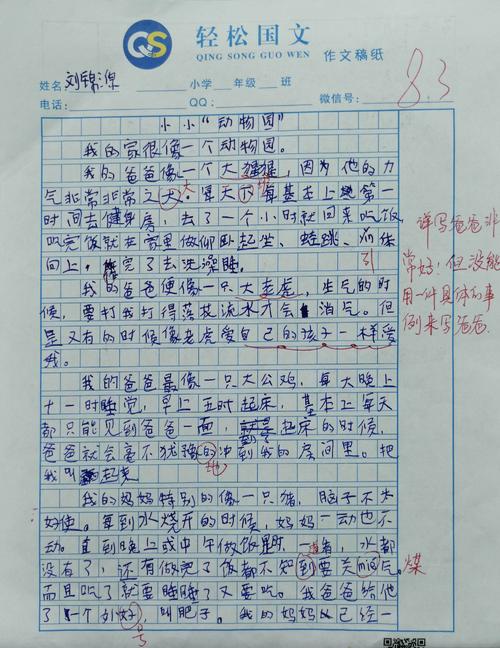 QS
轻松国文
QING SONG GUO WEN
作文稿纸
83
姓名 刘锦 小学 年级 班
电话: QQ: 微信号:
小小“动物园”
我的家很像一个动物园。
我的爸爸像一个大猩猩,因为他的力
气非常非常之大。每天下 基本上是第一
时间去健身房,去了一个小时就回来吃饭
吃完饭就在家里做仰卧起坐、蛙跳、 体
向上, 完了去洗澡睡。
引
我的爸爸便像一只大老虎,生气的时
候,要打我打得落花流水才会消气。但
是又有的时候像老虎爱自己的孩子一样爱
我。
详写爸爸非
常好!但没能
用一件具体的事
例来写爸爸.
我的爸爸最像一只大公鸡,每天晚上
十一时睡觉,早上五时起床,基本上每天
都只能见到爸爸一面,就是起床的时候,
爸爸就会毫不犹豫的冲到我的房间里。把
地
我叫起
我的妈妈特别的像一只猪,脑子不太
好使。每到水烧开的时候,妈妈一动也不
动。直到晚上或中午做饭时,一看,水都
没有了,还有做完了饭都不知到要关mei气。
道
煤
而且吃了就要睡睡了又要吃。我爸爸给他
了一个外好,叫肥子。我的妈妈已经一
号